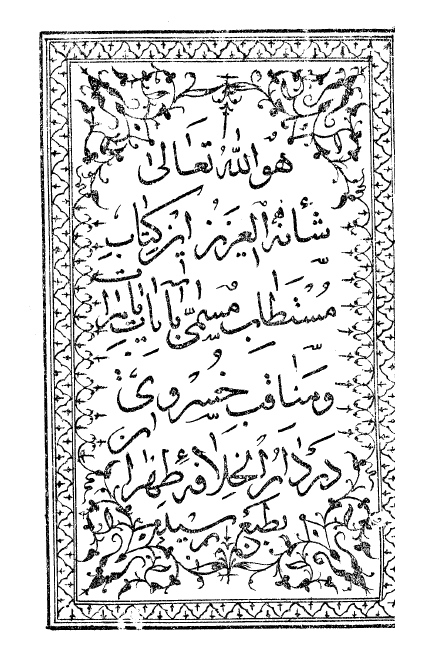 هُوَ اللّٰه تَعَالیٰ
شَأنَهُ العَزیز این کِتابِ
مُسْتَطاب مُسمّیٰ بآیات باهرات
وَمَنَاقِب خُسْرویّ
دَر دَارُ الْخِلافهٔ طهران
بطبع رسید